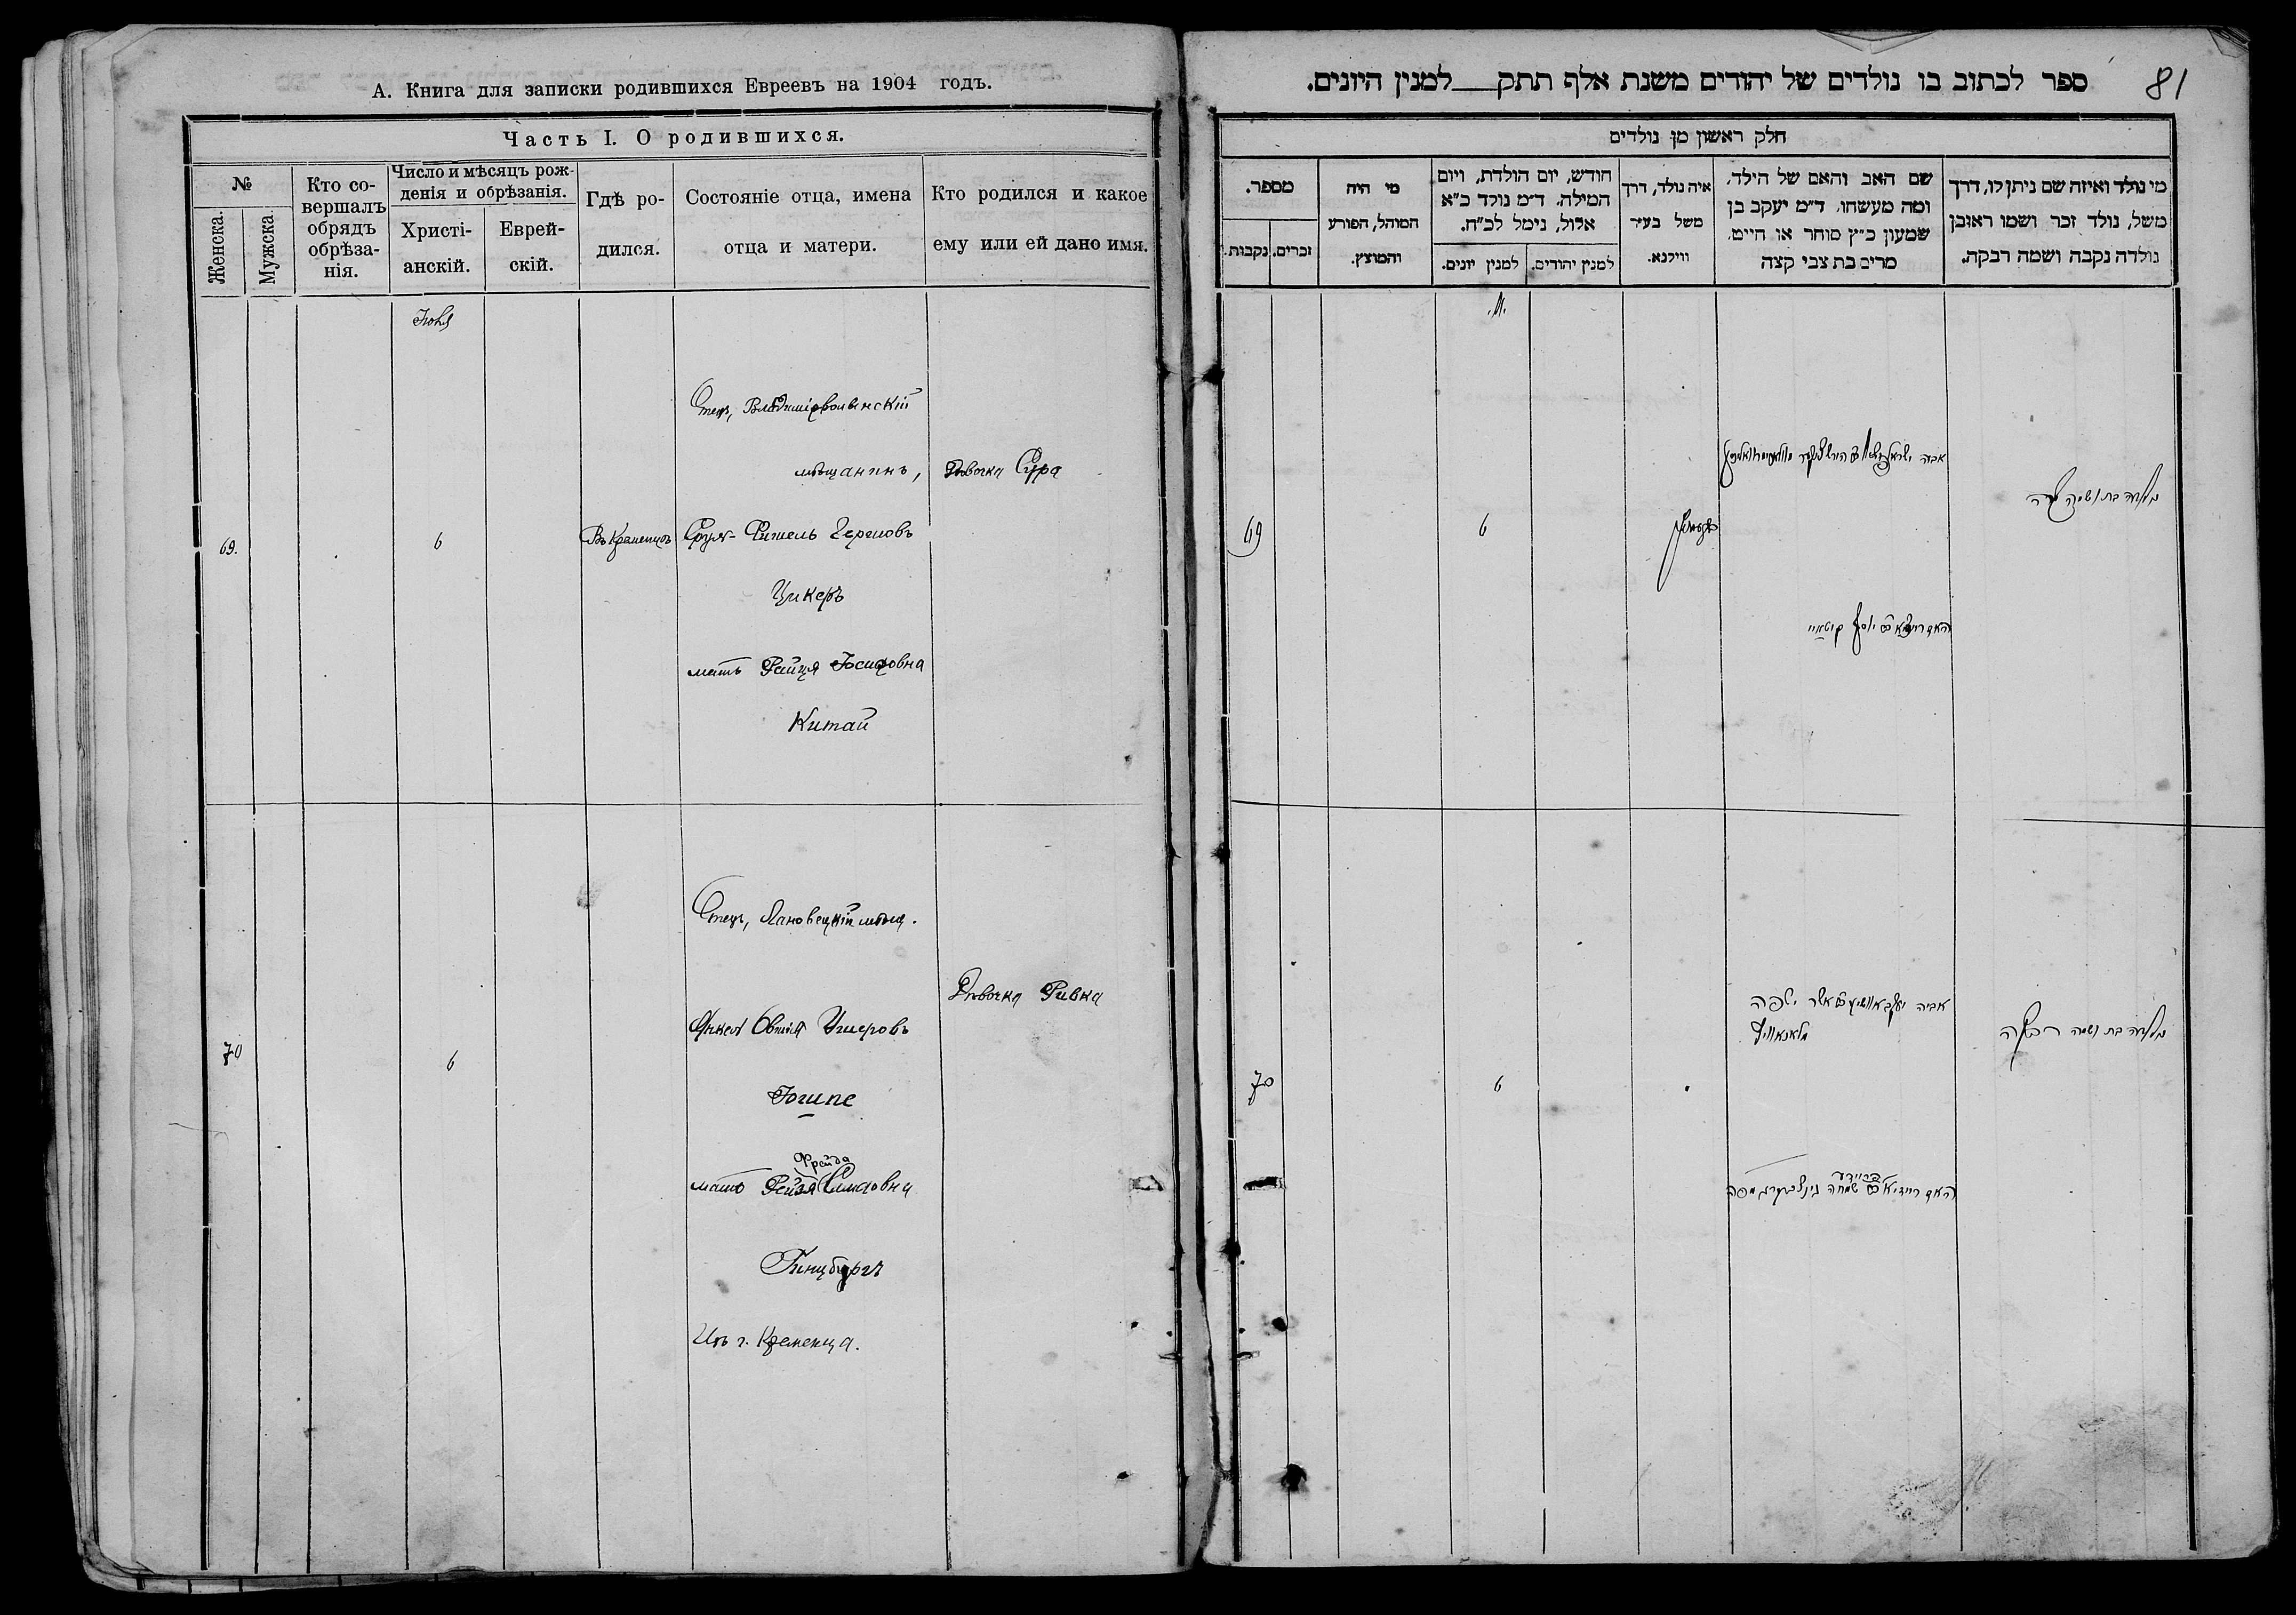 А. Книга для записки родившихся Евреевъ на 1904 годъ.
Часть I. О родившихся.
№
Женска.
Мужска.
Кто со-
вершалъ
обрядъ
обрѣза-
нія.
Число и мѣсяцъ рож-
денія и обрѣзанія.
Христі-
анскій.
Еврей-
скій.
Гдѣ ро-
дился.
Состояніе отца, имена
отца и матери.
Кто родился и какое
ему или ей дано имя.
Отецъ, Владимірволынскій
мѣщанинъ,
Дѣвочка Сура
69.
6
Въ Кременцѣ
Сруль-Фишель Гершовъ
Цикеръ
мать Рейзя Іосифовна
Китай
Отецъ, Лановецкій мѣщ.
Дѣвочка Ривка
70
6
Янкель Овшія Ушеровъ
Іогипе
Фрейда
мать Рейзя Симховна
Гинцбургъ
Изъ г. Кременца.
81
ספר לכתוב בו נולדים של יהודים משנת אלף תתק למנין היונים.
חלק ראשון מן נולדים
מי נולד ואיזה שם ניתן לו, דרך
משל, נולד זכר ושמו ראובן
נולדה נקבה ושמה רבקה.
שם האב והאם של הילד,
ומה מעשהו. ד״מ יעקב בן
שמעון כ״ץ סוחר או חייט.
מרים בת צבי קצה
איה נולד, דרך
משל בעיר
ווילנא.
חודש, יום הולדת, ויום
המילה. ד״מ נולד כ״א
אלול, נימל לכ״ח.
למנין יהודים.
למנין יונים.
מי היה
המוהל, הפורע
והמוצץ.
מספר.
זכרים.
נקבות.
נולדה בת ושמה שרה
69
6
70
6
נולדה בת ושמה רבקה